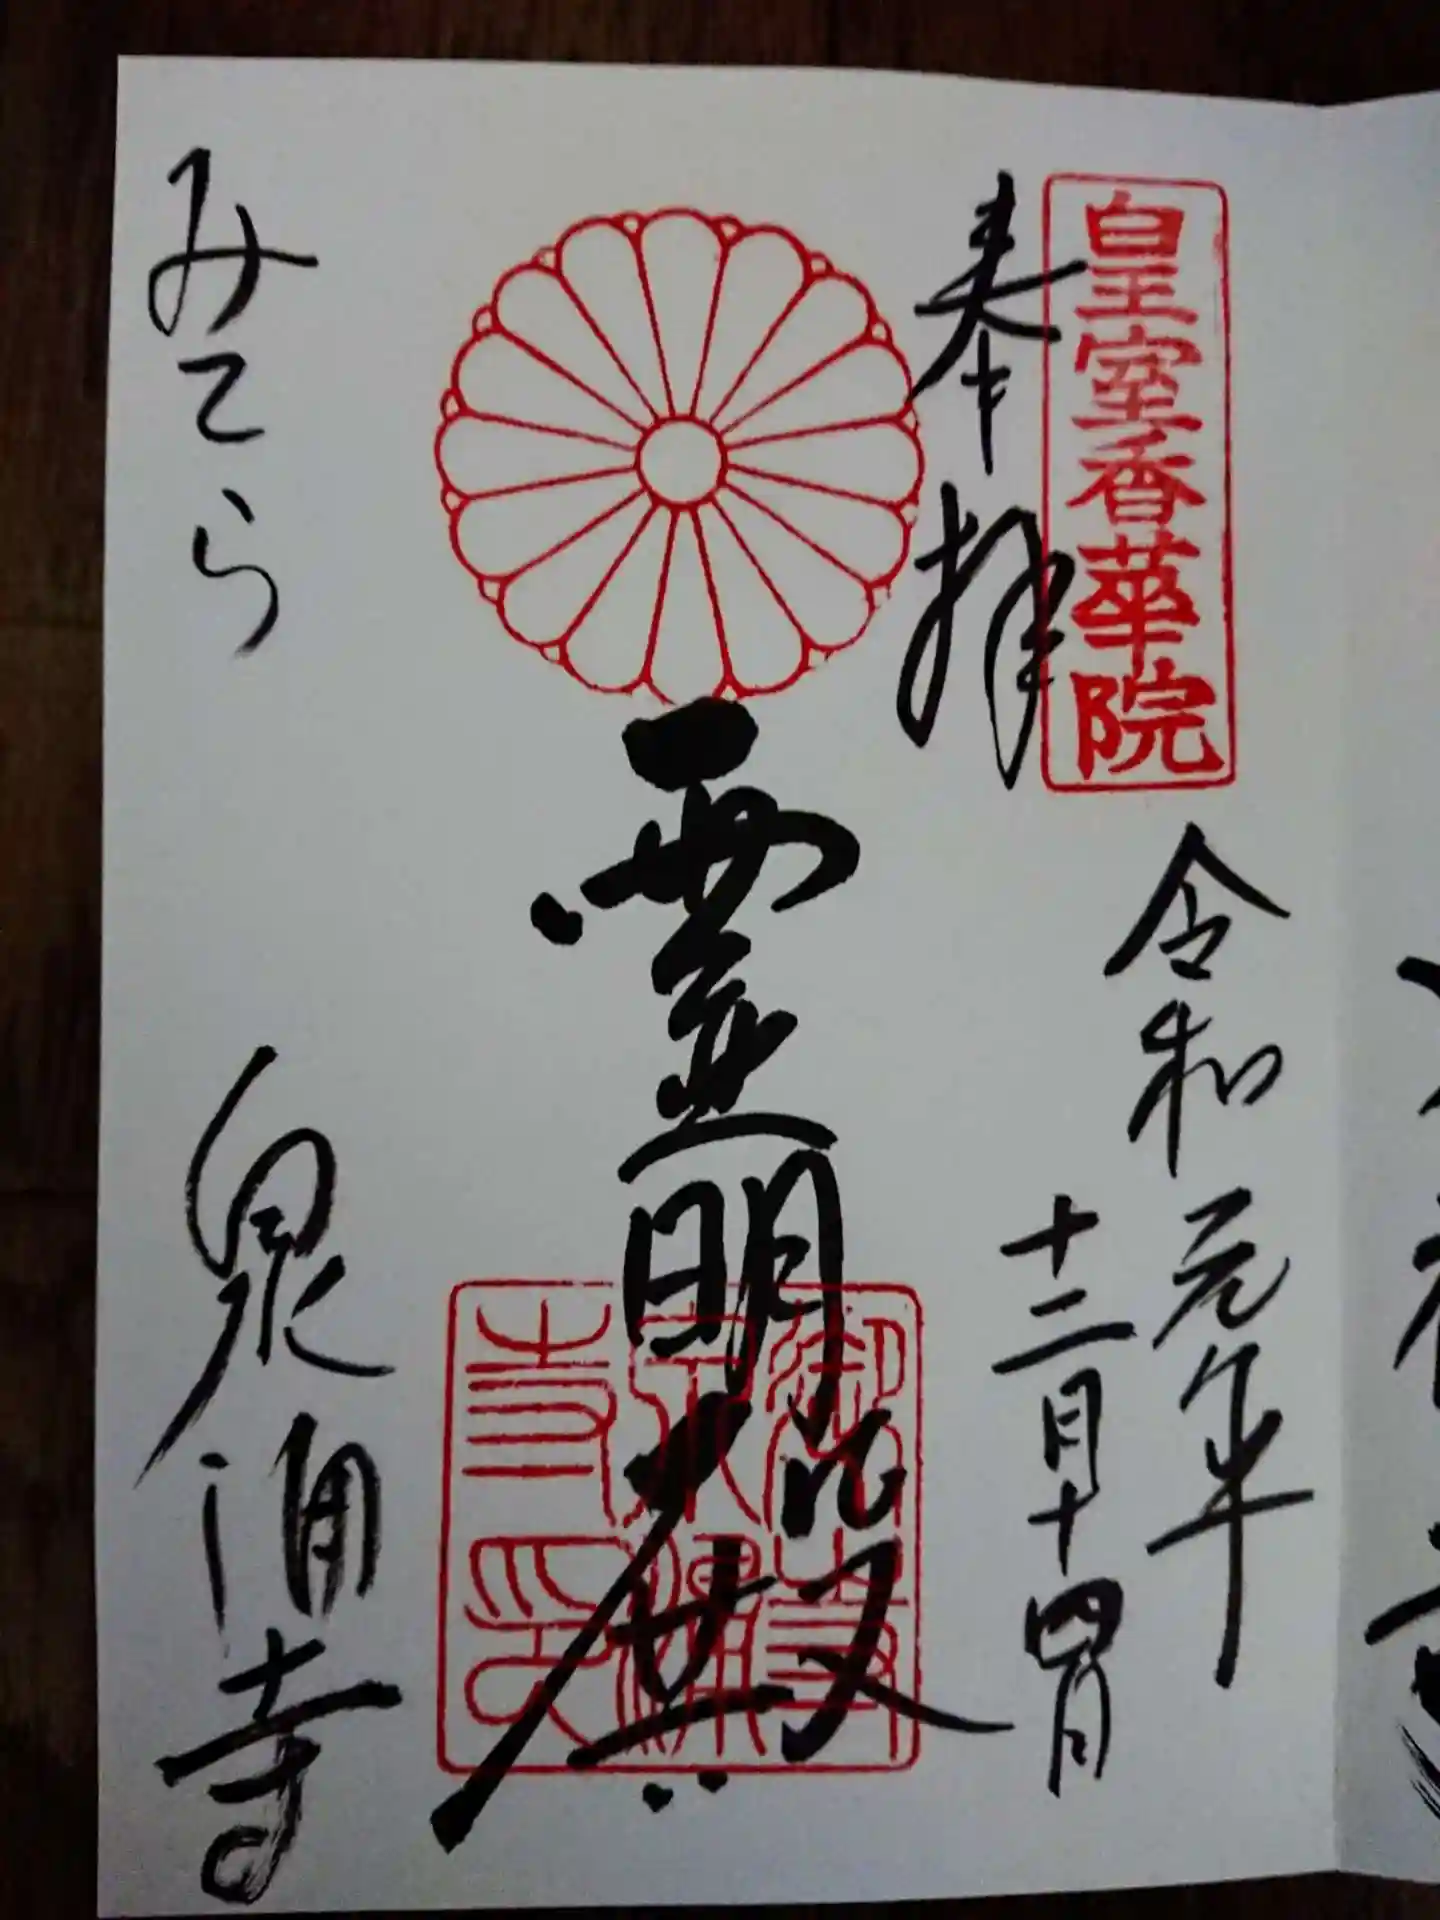 皇室香華院
奉拝
令和元年
十二月十四日
霊明殿
みてら
泉涌寺